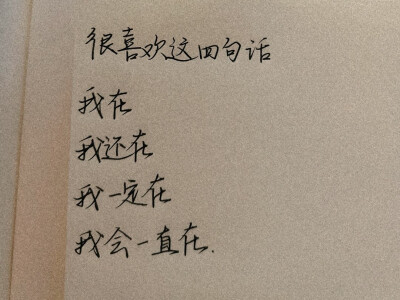 很喜欢这四句话
我在
我还在
我一定在
我会一直在.